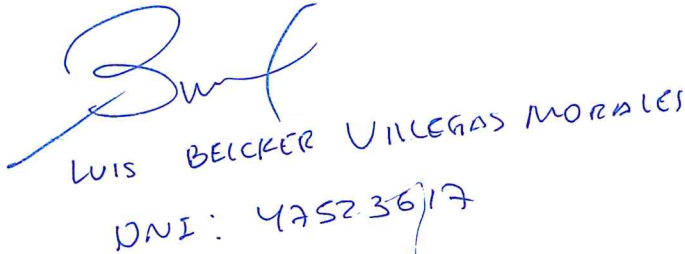 LUIS BELCKER VILLEGAS MORALES
DNI: 47523617